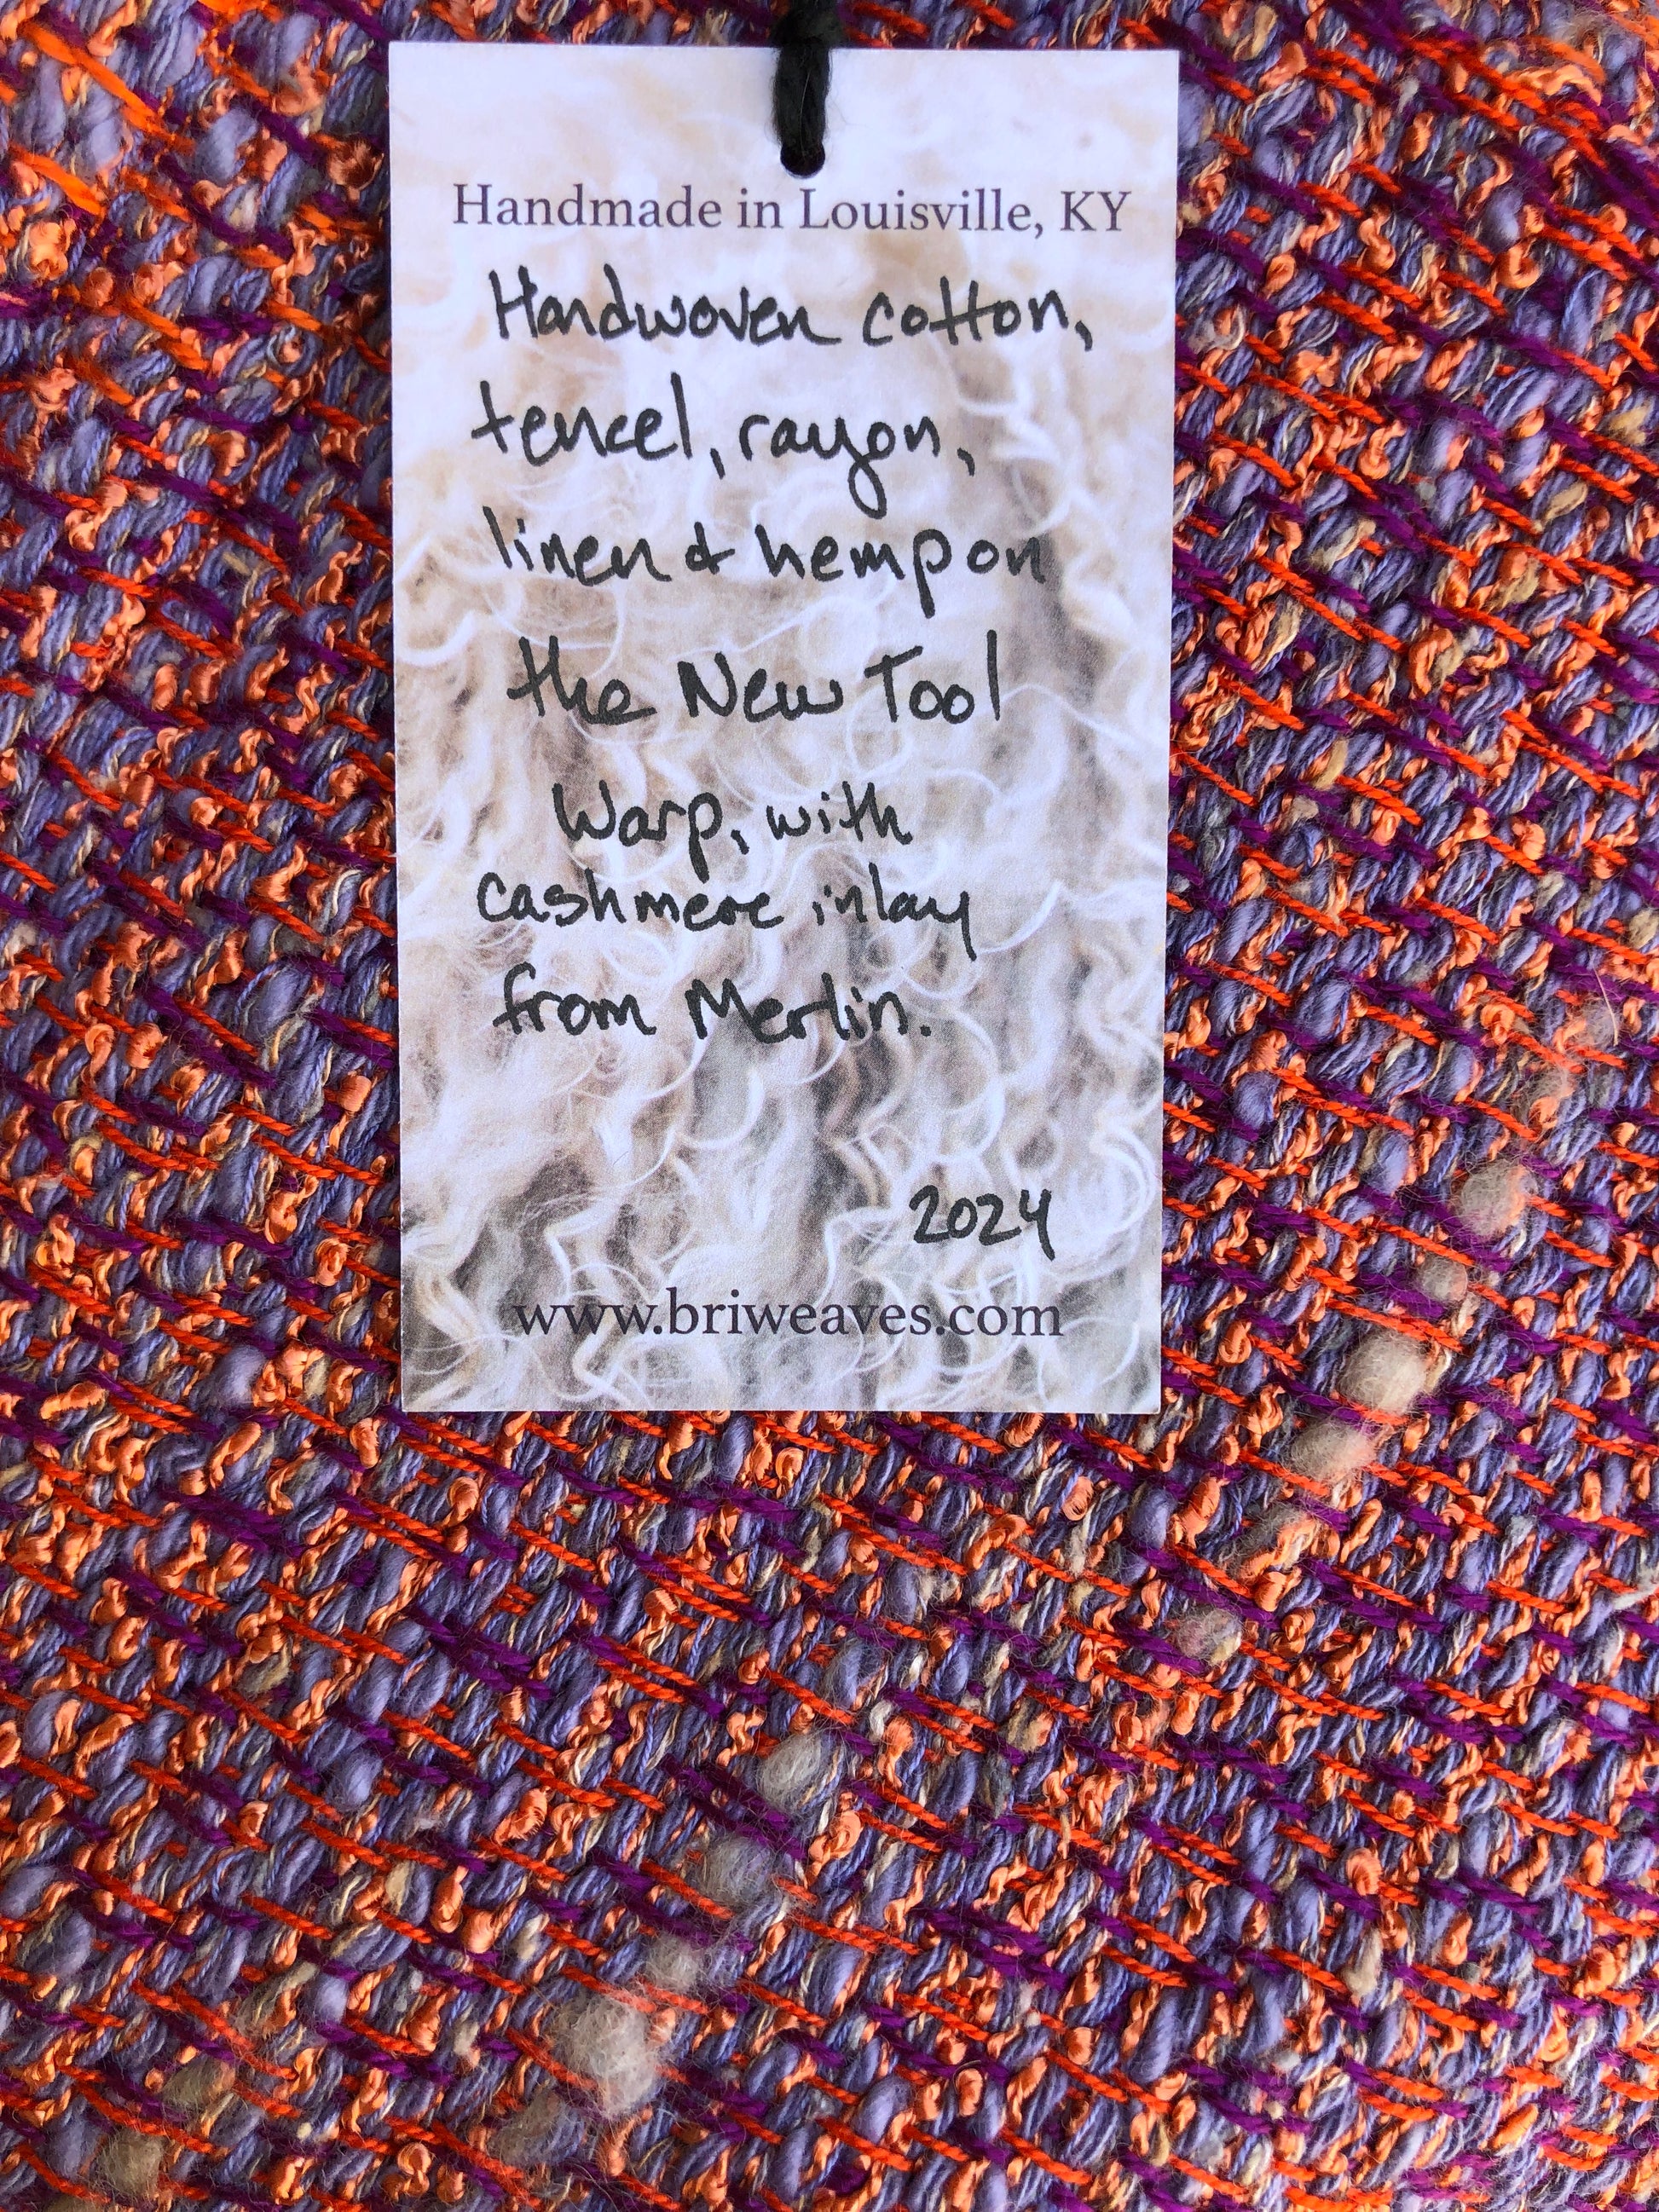 Handmade in Louisville, KY
Handwoven cotton,
tencel, rayon,
linen & hemp on
the New Tool
Warp, with
cashmere inlay
from Merlin.
2024
www.briweaves.com